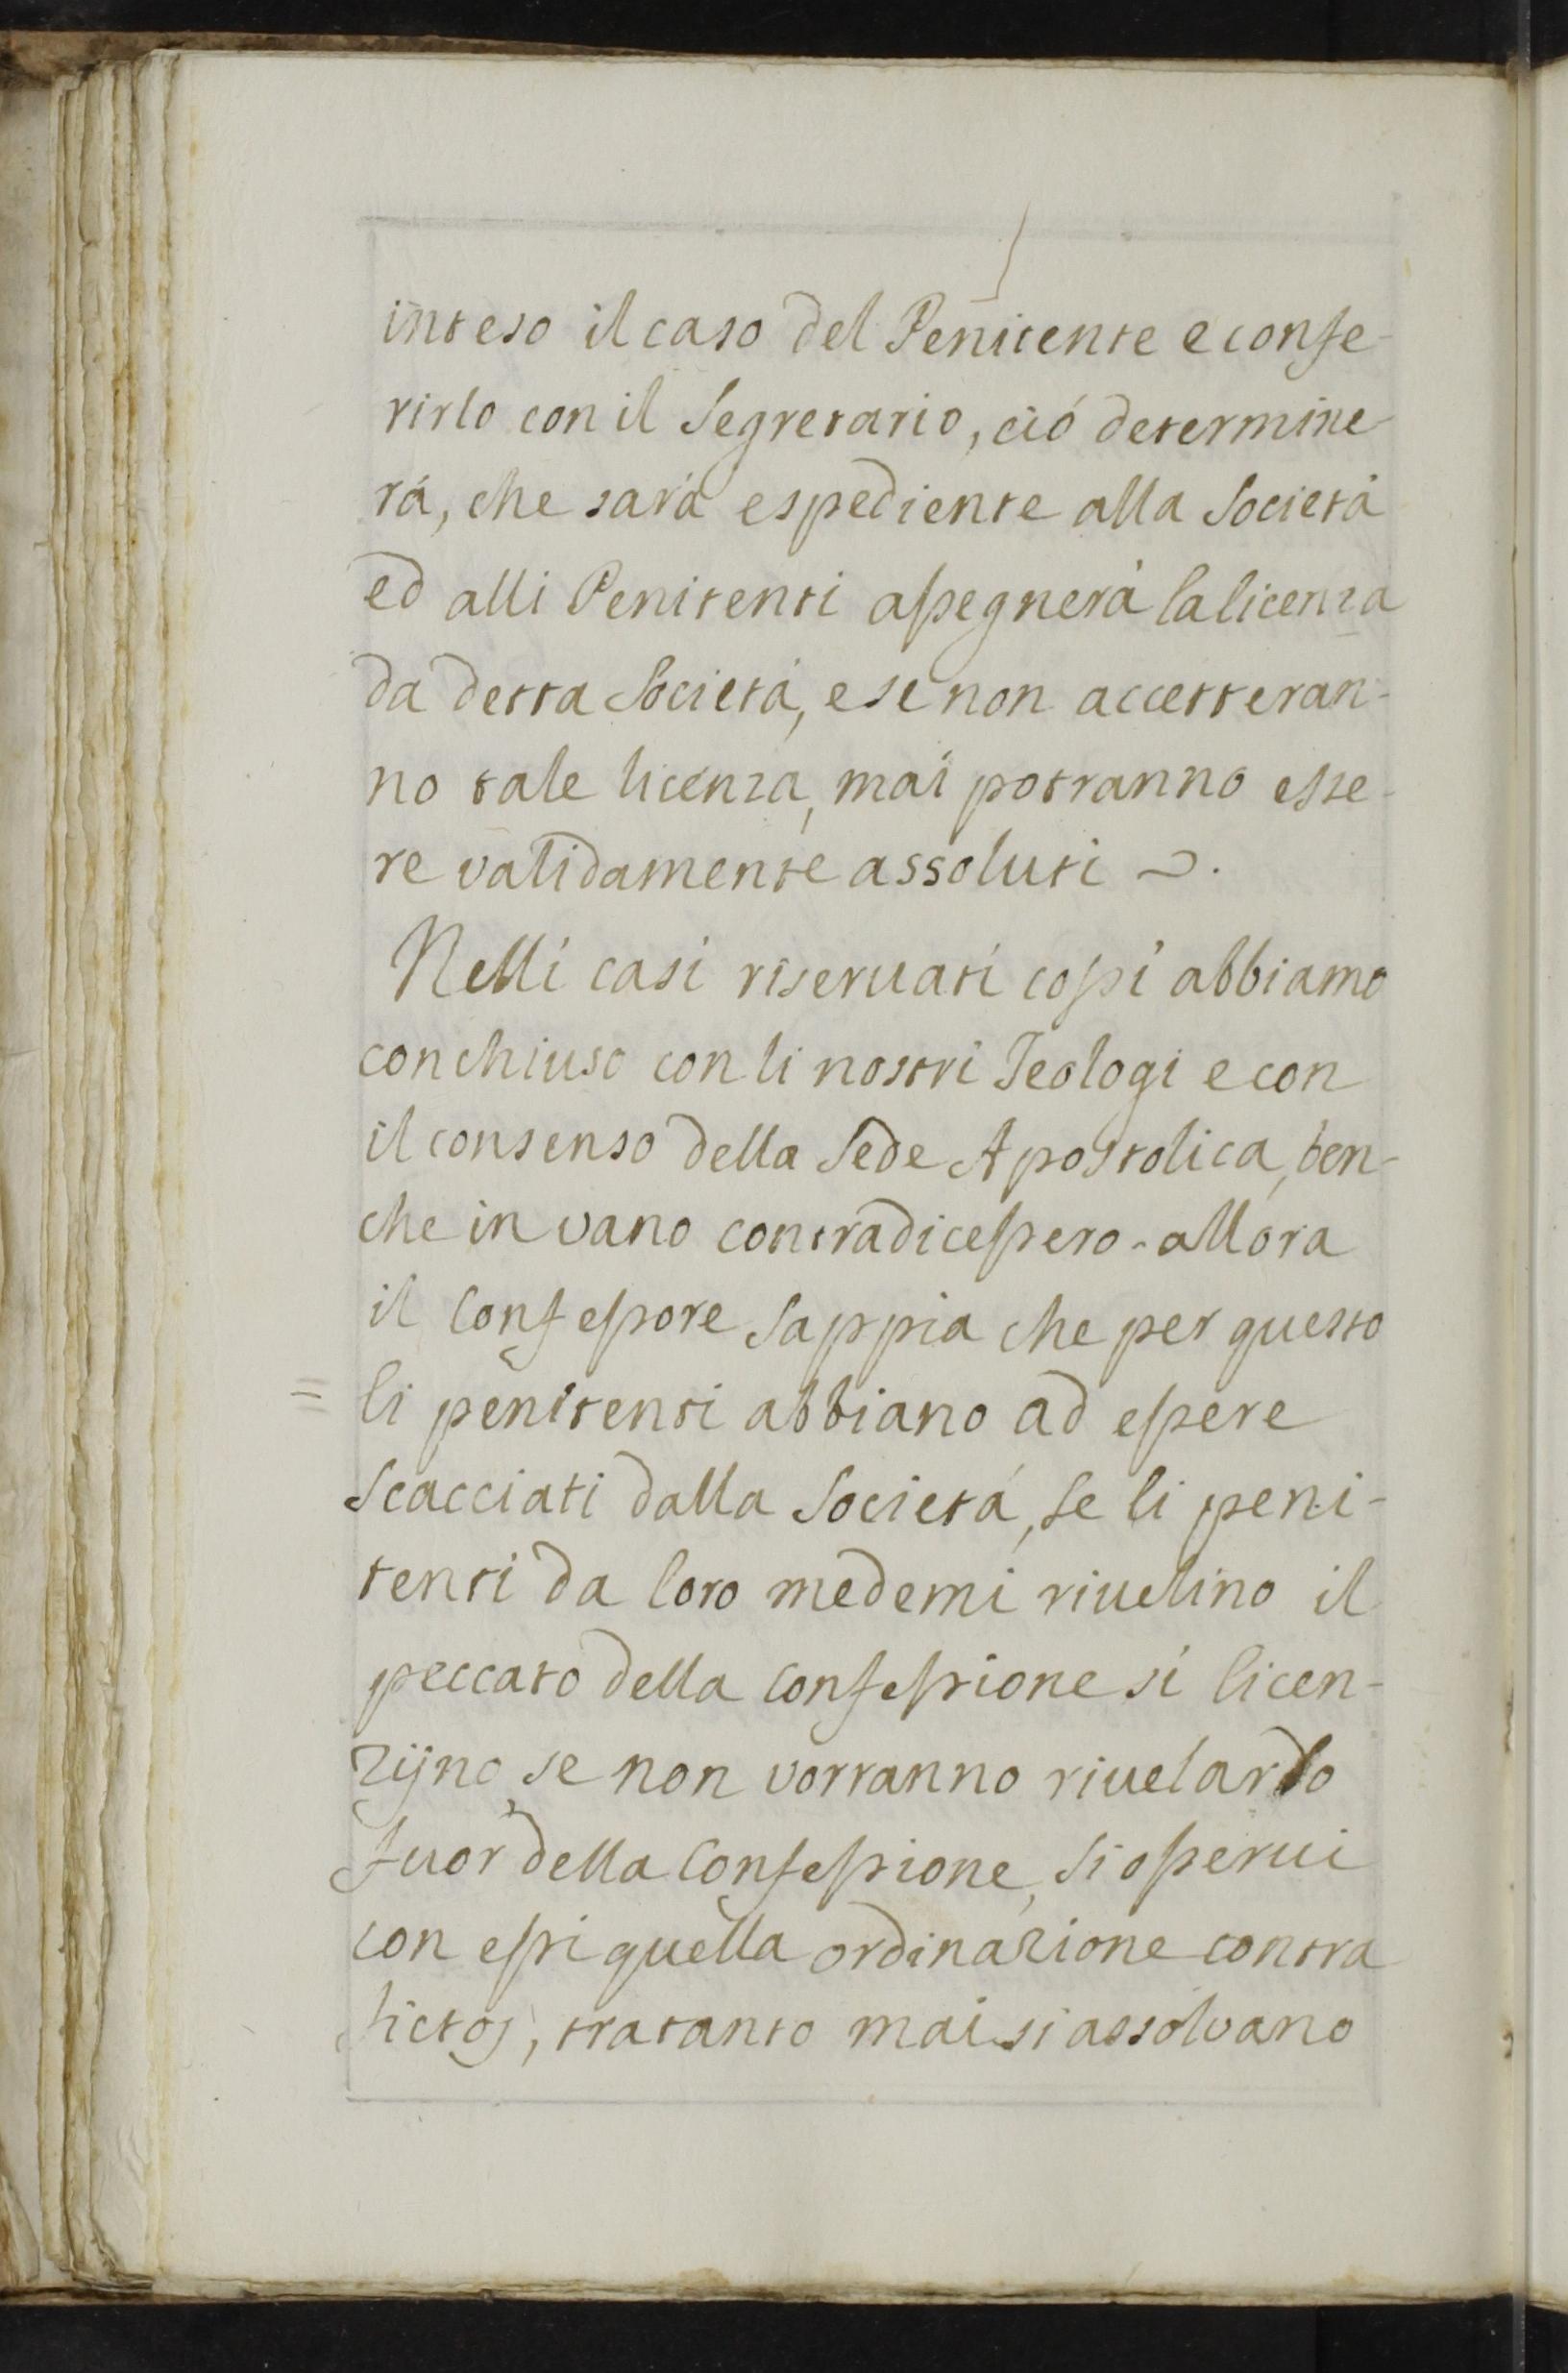 inteso il caso del Penitente e confe-
rirlo con il Segretario, ció determine
rá, che sará espediente alla Societá
ed alli Penitenti assegnerá la licenza
da detta Societá, e se non accetteran-
no tale licenza, mai potranno esse-
re validamente assoluti ~.
Nelli casi riseruati cossi abbiamo
conchiuso con li nostri Teologi e con
il consenso della Sede Apostolica, ben-
che in vano contradicessero - allora
il Confessore Sappia che per questo
= li penitenti abbiano ad essere
Scacciati dalla Societá, se li peni-
tenti da loro medemi riuelino il
peccato della Confessione si licen-
zijno, se non vorranno riuelarlo
fuor della Confessione, Si osserui
con essi quella ordinazione contra
tratanto mai si assolvano